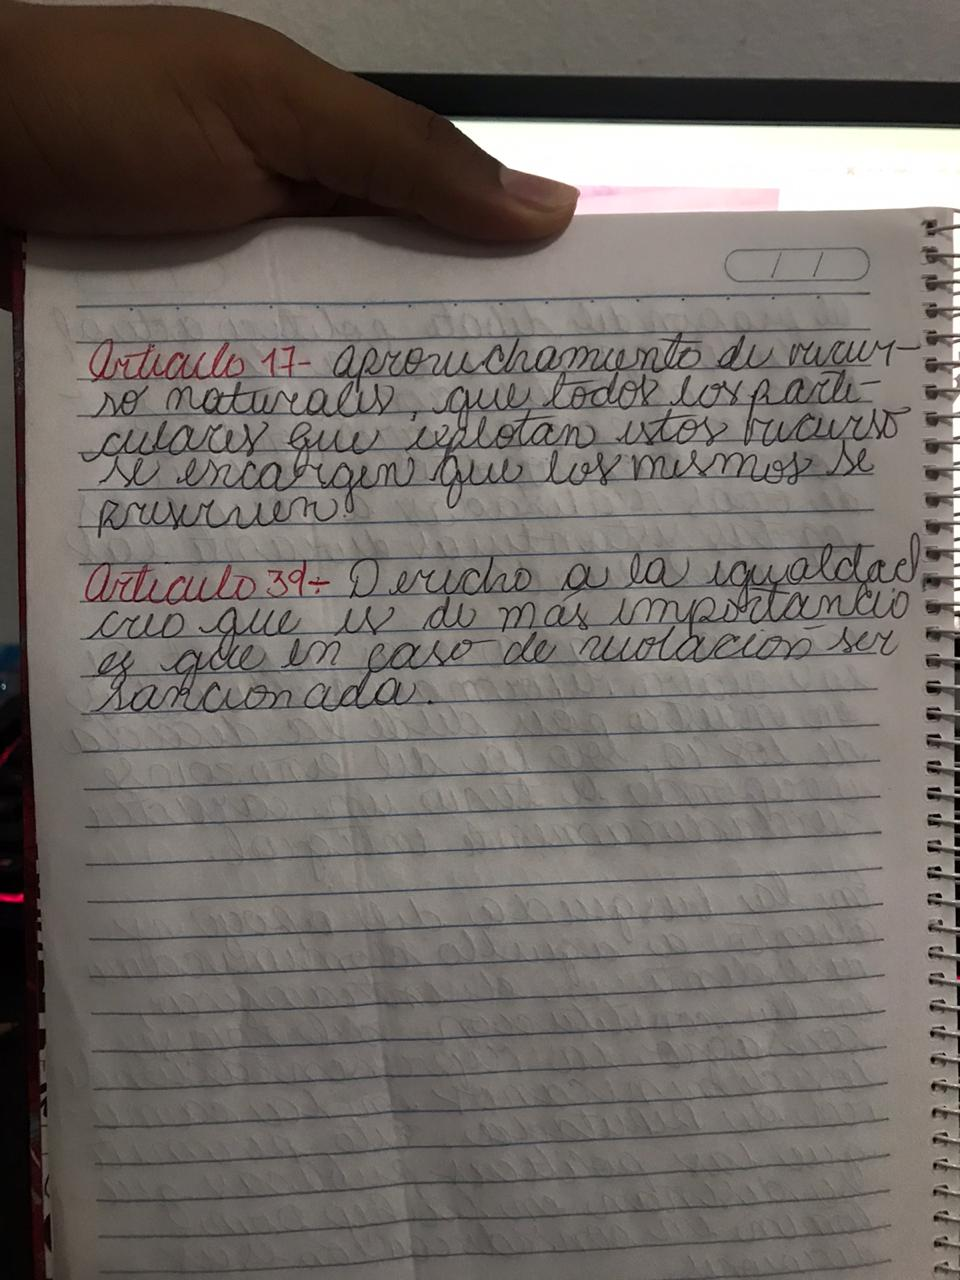 Articulo 17- aprovechamiento de recur-
so naturales, que todos los parti-
culares que explotan estos recurso
se encargen que los mismos se
preserven.
Articulo 39:- Derecho a la igualdad
creo que es de más importancia
es que en caso de violación ser
sancionada.